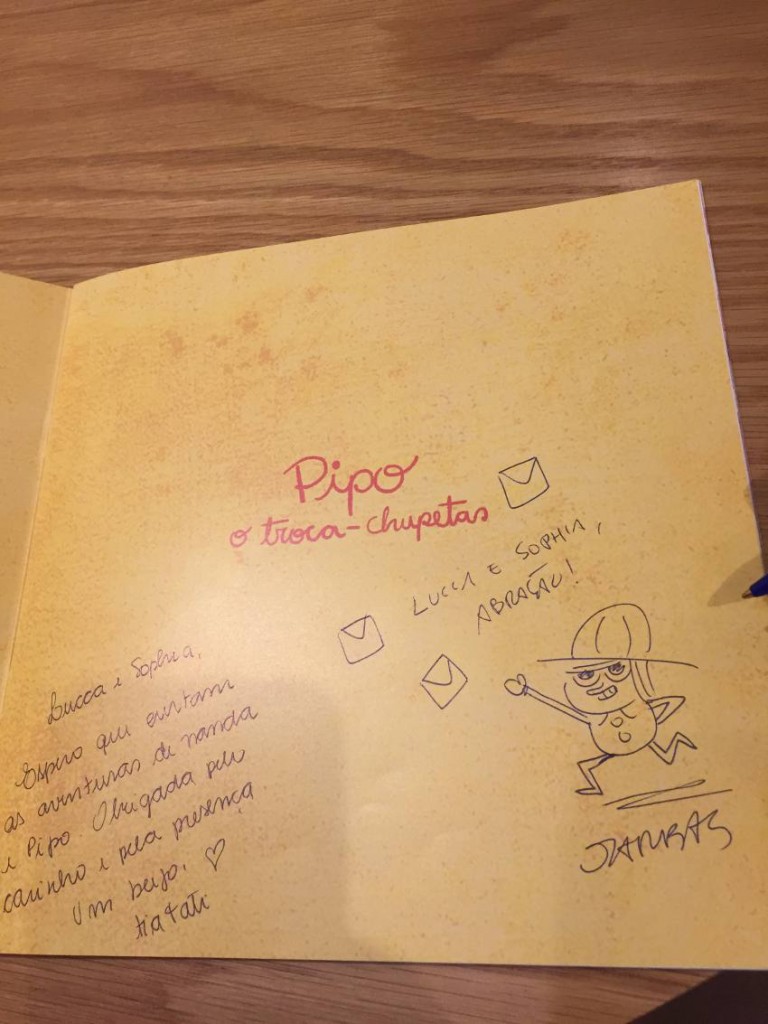 Pipo
o troca-chupetas
LUCCA E SOPHIA,
ABRAÇÃO!
JAMBAS
Lucca e Sophia,
Espero que curtam
as aventuras de nanda
e Pipo. Obrigada pelo
carinho e pela presença.
Um beijo. ♡
tia tati